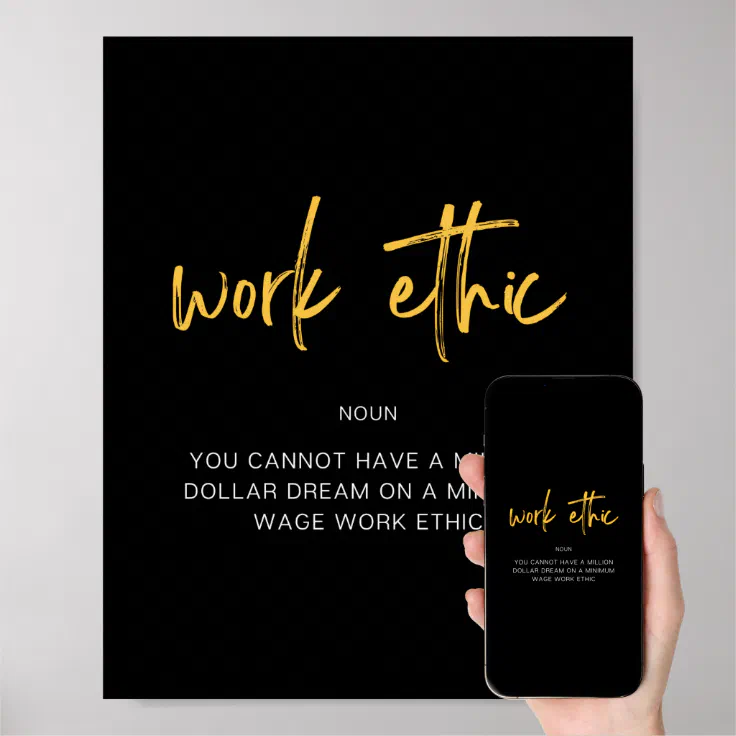 work ethic
NOUN
YOU CANNOT HAVE A MI
DOLLAR DREAM ON A MIN
WAGE WORK ETHIC
work ethic
NOUN
YOU CANNOT HAVE A MILLION
DOLLAR DREAM ON A MINIMUM
WAGE WORK ETHIC